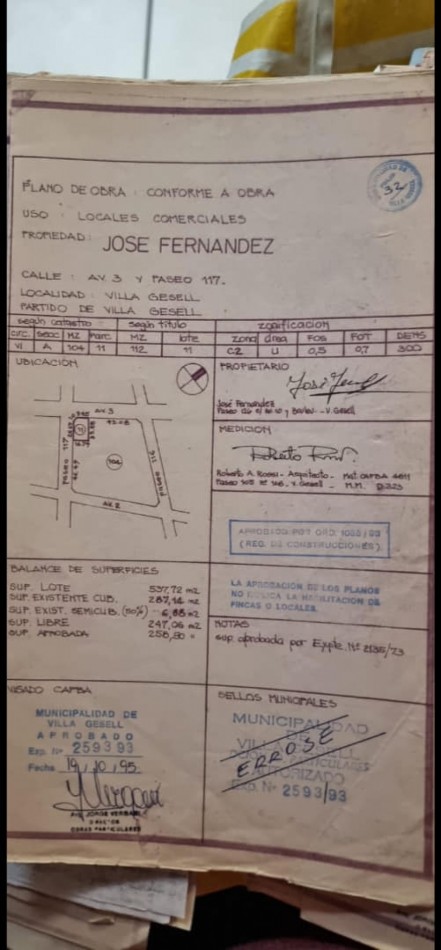 PLANO DE OBRA : CONFORME A OBRA
USO : LOCALES COMERCIALES
PROPIEDAD: JOSE FERNANDEZ
CALLE : AV. 3 Y PASEO 117.
LOCALIDAD : VILLA GESELL
PARTIDO DE VILLA GESELL
según catastro según título zonificacion
circ. secc. MZ parc. MZ lote zona área FOS FOT DENS
VI A 104 11 112 11 C2 U 0,5 0,7 300
UBICACIÓN
AV. 3
PASEO 117
PASEO 116
104
AV. 2
PROPIETARIO
José Fernández
MEDICION
Roberto A. Rossi - Arquitecto - Mat. CAPBA
APROBADO POR ORD.
(REG. DE CONSTRUCCIONES)
LA APROBACION DE LOS PLANOS
NO IMPLICA LA HABILITACION DE
FINCAS O LOCALES.
BALANCE DE SUPERFICIES
SUP. LOTE 537,72 m2
SUP. EXISTENTE CUB. m2
SUP. EXIST. SEMICUB. (50%) m2
SUP. LIBRE 247,06 m2
SUP. APROBADA
NOTAS
sup. aprobada por Expte. Nº
VISADO CAPBA
MUNICIPALIDAD DE
VILLA GESELL
APROBADO
Exp. Nº 2593 93
Fecha 19/10/95
ARQ. JORGE VERGARI
DIRECTOR
OBRAS PARTICULARES
SELLOS MUNICIPALES
MUNICIPALIDAD
DE
VILLA GESELL
OBRAS PARTICULARES
AUTORIZADO
EXP. Nº 2593/93
ERROSE
32